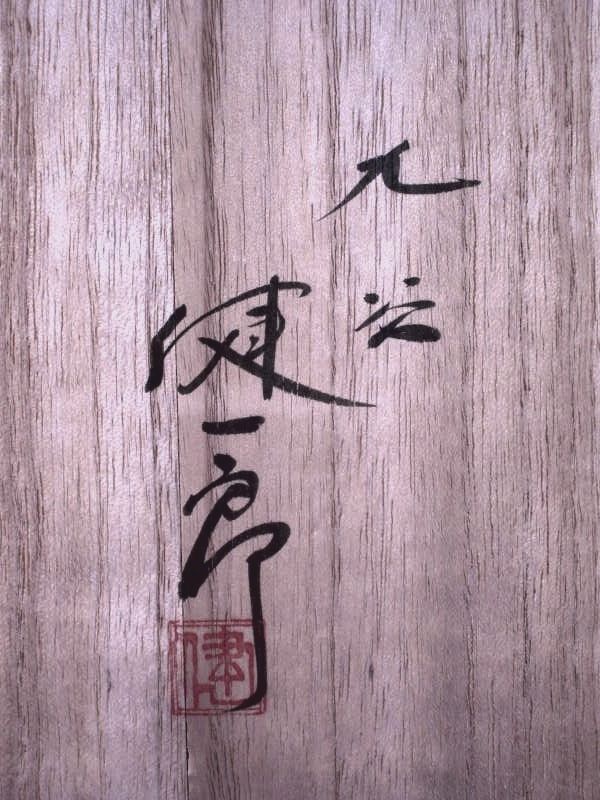 九谷
健一郎
健